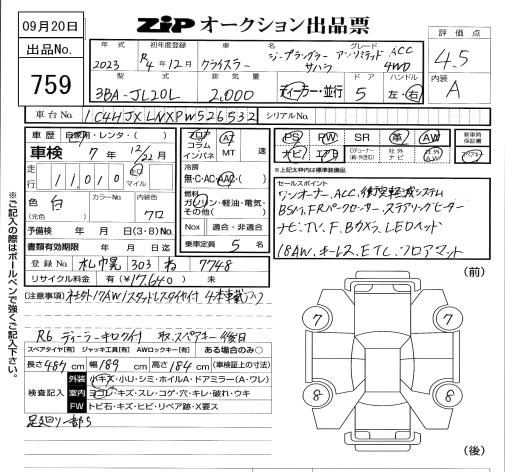 09月20日
ZIP オークション出品票
出品No.
759
年式 初年度登録 車名 グレード
2023 R4年12月 クライスラー ジープラングラー アンリミテッド サハラ ACC 4WD
評価点
4.5
内装
A
型式 排気量 ドア ハンドル
3BA-JL20L 2,000 ディーラー・並行 5 左・右
車台No. 1C4HJXLNXPW526532 シリアルNo.
車歴 自家用・レンタ・( )
車検 7年 12/22月
走行 11,010 km マイル
色 白 カラーNo. 内装色 クロ
(元色)
予備検 年 月 日(3・8)No.
書類有効期限 年 月 日迄
登録No 札幌 303 ね 7748
リサイクル料金 有(¥17,640) 未
フロア AT
コラム
インパネ MT 速
冷房
無・C・AC・AAC
燃料
ガソリン・軽油・電気・その他( )
Nox 適合・非適合
乗車定員 5名
PS PW SR 革 AW
ナビ エアB Dチューナー(純・外含む) 社外ナビ 社外AW
新車時保証書
スペアキー
※上記太枠内は標準装備品
セールスポイント
ワンオーナー、ACC、衝突軽減システム
BSM、FRパークセンサー、ステアリングヒーター
ナビ、TV、F、Bカメラ、LEDヘッド
18AW、キーレス、ETC、フロアマット
(注意事項) 社外17AW/スタッドレスタイヤ付 4本車載
R6 ディーラーキロク付 取、スペアキー後日
スペアタイヤ[有] ジャッキ工具[有] AWロックキー[有] ある場合のみ○
長さ487cm 幅189cm 高さ184cm (車検証上の寸法)
検査記入
外装 小キズ・小U・シミ・ホイルA・ドアミラー(A・ワレ)
室内 ヨゴレ・キズ・スレ・コゲ・穴・キレ・破れ・ウキ
FW トビ石・キズ・ヒビ・リペア跡・X要ス
足廻り一部S
(前)
7 7
8 8
(後)
※ご記入の際はボールペンで強くご記入下さい。